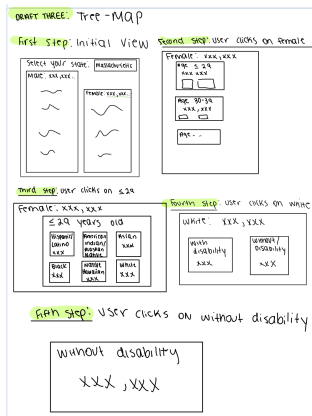 DRAFT THREE: Tree-MAP
First Step: Initial View
Select your state: Massachusetts
Male: xxx,xxx..
Female: xxx,xxx..
Second step: user clicks on female
Female: xxx,xxx
Age ≤ 29
xxx xxx
Age 30-39
xxx,xxx
Age...
Third step: user clicks on ≤29
Female: xxx,xxx
≤29 years old
Hispanic/
Latino
xxx
American
Indian/
Alaskan
Native
Asian
xxx
Black
xxx
Native
Hawaiian
xxx
White
xxx
Fourth step: user clicks on white
White: xxx,xxx
With
disability
xxx
Without/
disability
xxx
Fifth step: user clicks on without disability
without disability
xxx,xxx